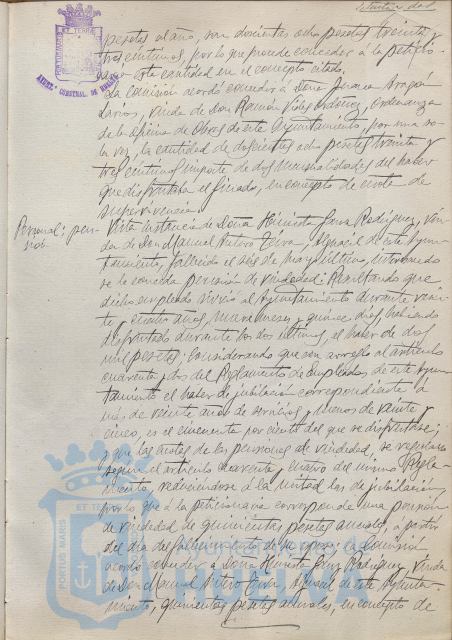 pesetas al año, son doscientas ocho pesetas treinta y
tres céntimos, por lo que procede conceder a la peticio-
naria esta cantidad en el concepto citado.
La Comisión acordó conceder a Doña Juana Aragón
Larios, viuda de Don Ramón Vides Ordóñez, Ordenanza
de la oficina de Obras de este Ayuntamiento, por una so-
la vez, la cantidad de doscientas ocho pesetas treinta y
tres céntimos importe de dos mensualidades del haber
que disfrutaba el finado, en concepto de cuota de
supervivencia.
Personal: pen-
sión.
Vista instancia de Doña Hiniesta Rodríguez, viu-
da de Don Manuel, Alguacil de este Ayun-
tamiento, fallecido el seis de mayo último, interesando
se le conceda pensión de viudedad: Resultando que
dicho empleado sirvió al Ayuntamiento durante vein-
te y cuatro años, nueve meses y quince días, habiendo
disfrutado durante los dos últimos, el haber de dos
mil pesetas: Considerando que con arreglo al artículo
cuarenta y dos del Reglamento de Empleados de este Ayun-
tamiento el haber de jubilación correspondiente a
más de veinte años de servicios y menos de veinte y
cinco, es el cincuenta por ciento del que se disfrutase;
y que las cuotas de las pensiones de viudedad, se regularán
según el artículo cuarenta y cuatro del mismo Regla-
mento, reduciéndose a la mitad las de jubilación,
por lo que a la peticionaria corresponde una pensión
de viudedad de quinientas pesetas anuales, a partir
del día del fallecimiento de su esposo: La Comisión
acordó conceder a Doña Hiniesta Rodríguez, viuda
de Don Manuel, Alguacil de este Ayunta-
miento, quinientas pesetas anuales, en concepto de
PORTUS MARIS ET TERRAE
AYUNT. CONSTNAL. DE HUELVA
PORTUS MARIS ET TE
Ayuntamiento de
HUELVA